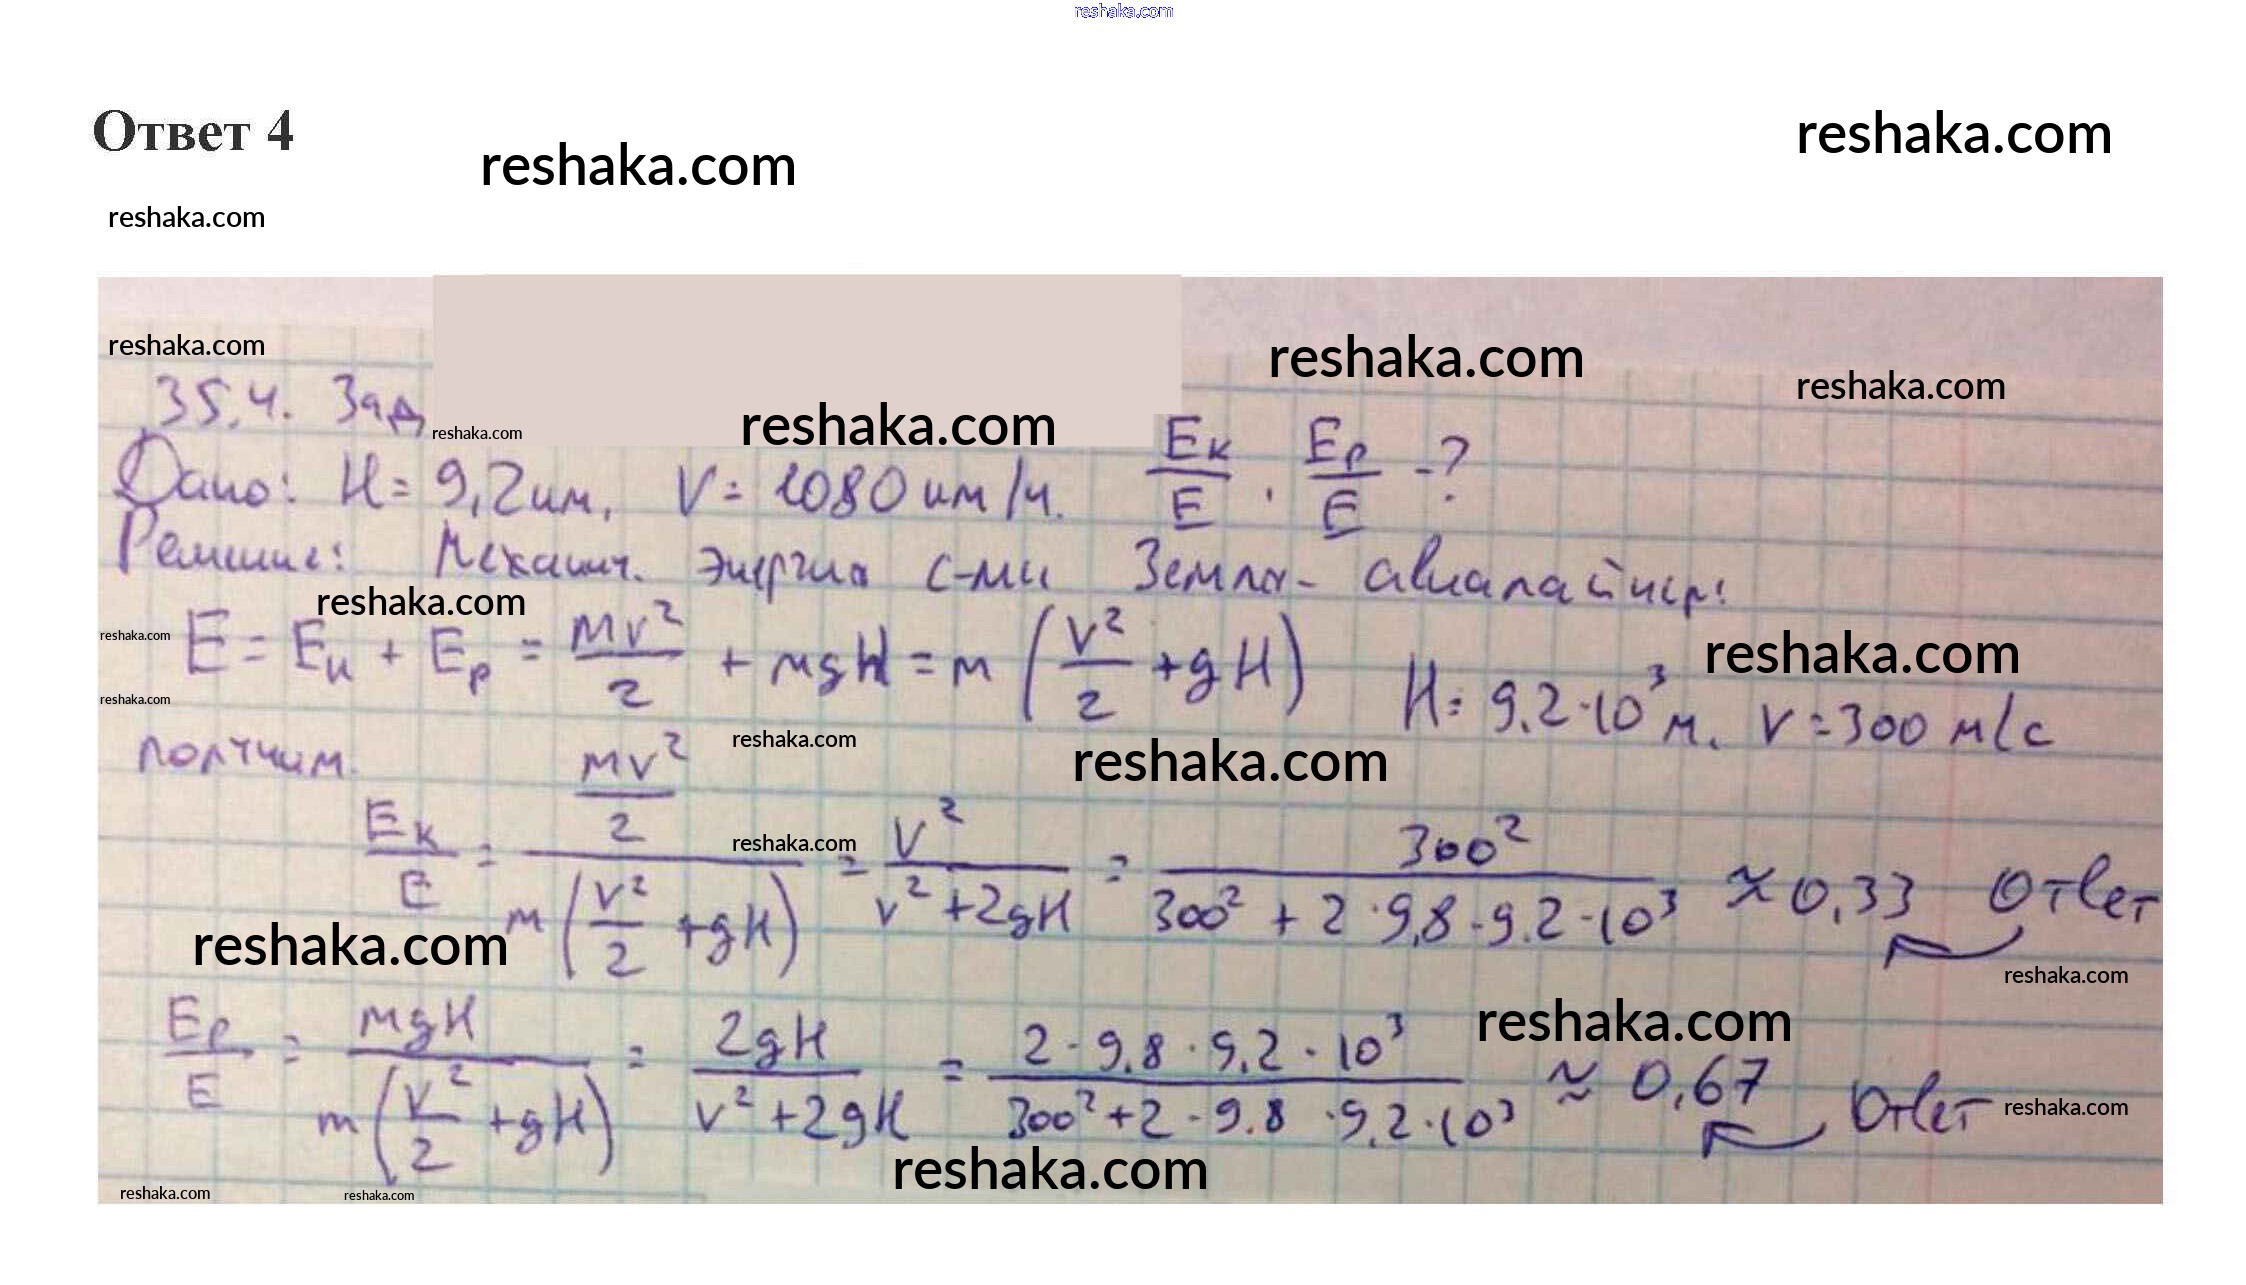 reshaka.com
Ответ 4
reshaka.com
reshaka.com
reshaka.com
reshaka.com
reshaka.com
reshaka.com
35.4. Зад
reshaka.com
reshaka.com
Дано: H = 9,2 км, V = 1080 км/ч. Eк/E, Ep/E - ?
Решение: Механич. энергия с-мы Земля - авиалайнер:
reshaka.com
reshaka.com
E = Eк + Ep = mv²/2 + mgH = m (v²/2 + gH) H = 9,2·10³ м, V = 300 м/с
reshaka.com
reshaka.com
получим
reshaka.com
reshaka.com
reshaka.com
Eк/E = (mv²/2)/(m(v²/2 + gH)) = v²/(v² + 2gH) = 300²/(300² + 2·9,8·9,2·10³) ≈ 0,33 Ответ
reshaka.com
reshaka.com
reshaka.com
Ep/E = mgH/(m(v²/2 + gH)) = 2gH/(v² + 2gH) = 2·9,8·9,2·10³/(300² + 2·9,8·9,2·10³) ≈ 0,67 Ответ
reshaka.com
reshaka.com
reshaka.com
reshaka.com